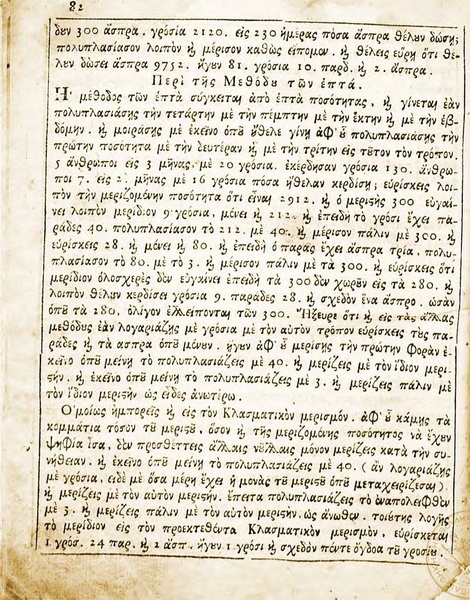 82
δυν 300 ἄσπρα. γρόσια 2120. εἰς 230 ἡμέρας πόσα ἄσπρα θέλουν δώσῃ;
πολυπλασίασον λοιπὸν ἢ μέρισον καθὼς εἴπομεν. ἢ θέλεις εὕρῃ ὅτι θέ-
λουν δώσει ἄσπρα 9732. ἤγουν 81. γρόσια 10. παρδ. ἢ 2. ἄσπρα.
Περὶ τῆς Μεθόδου τῶν ἑπτά.
Ἡ μέθοδος τῶν ἑπτὰ σύγκειται ἀπὸ ἑπτὰ ποσότητας, ἢ γίνεται ἐὰν
πολυπλασιάσῃς τὴν τετάρτην μὲ τὴν πέμπτην μὲ τὴν ἕκτην ἢ μὲ τὴν ἑβ-
δόμην. ἢ μοιράσῃς μὲ ἐκεῖνο ὁποῦ ἤθελε γίνῃ ἀφ' οὗ πολυπλασιάσῃς τὴν
πρώτην ποσότητα μὲ τὴν δευτέραν ἢ μὲ τὴν τρίτην εἰς τοῦτον τὸν τρόπον.
5 ἄνθρωποι εἰς 3 μῆνας μὲ 20 γρόσια. ἐκέρδησαν γρόσια 130. ἄνθρω-
ποι 7. εἰς 2. μῆνας μὲ 16 γρόσια πόσα ἤθελαν κερδίσῃ; εὑρίσκεις λοι-
πὸν τὴν μεριζομένην ποσότητα ὅτι εἶναι 2912. ἢ ὁ μεριςὴς 300 εὐγαί-
νει λοιπὸν μερίδιον 9 γρόσια, μένει ἢ 212. ἢ ἐπειδὴ τὸ γρόσι ἔχει πα-
ράδες 40. πολυπλασίασον τὸ 212. μὲ 40. ἢ μέρισον πάλιν μὲ 300. ἢ
εὑρίσκεις 28. ἢ μένει ἢ 80. ἢ ἐπειδὴ ὁ παρᾶς ἔχει ἄσπρα τρία. πολυ-
πλασίασον τὸ 80. μὲ τὸ 3. ἢ μέρισον πάλιν μὲ τὰ 300. ἢ εὑρίσκεις ὅτι
μερίδιον ὁλοσχερὲς δὲν εὐγαίνει ἐπειδὴ τὰ 300 δὲν χωροῦν εἰς τὰ 280. ἢ
λοιπὸν θέλουν κερδίσει γρόσια 9. παράδες 28. ἢ σχεδὸν ἕνα ἄσπρο. ὡσὰν
ὁποῦ τὰ 280, ὀλίγον ἐλλείπονται τῶν 300. Ἤξευρε ὅτι ἢ εἰς τὰς ἄλλας
μεθόδους ἐὰν λογαριάζῃς μὲ γρόσια μὲ τὸν αὐτὸν τρόπον εὑρίσκεις τοὺς πα-
ράδες ἢ τὰ ἄσπρα ὁποῦ μένουν. ἤγουν ἀφ' οὗ μερίσῃς τὴν πρώτην φορὰν ἐ-
κεῖνο ὁποῦ μείνῃ τὸ πολυπλασιάζεις μὲ 40. ἢ μερίζεις μὲ τὸν ἴδιον μερι-
ςήν. ἢ ἐκεῖνο ὁποῦ μείνῃ τὸ πολυπλασιάζεις μὲ 3. ἢ μερίζεις πάλιν μὲ
τὸν ἴδιον μεριςὴν ὡς εἶδες ἀνωτέρω.
Ὁμοίως ἠμπορεῖς ἢ εἰς τὸν Κλασματικὸν μερισμόν. ἀφ' οὗ κάμῃς τὰ
κομμάτια τόσον τοῦ μεριςοῦ, ὅσον ἢ τῆς μεριζομένης ποσότητος νὰ ἔχουν
ψηφία ἴσα, δὲν προσθέττεις ἄλλαις νούλλαις μόνον μερίζεις κατὰ τὴν συ-
νήθειαν. ἢ ἐκεῖνο ὁποῦ μείνῃ τὸ πολυπλασιάζεις μὲ 40. (ἂν λογαριάζῃς
μὲ γρόσια, εἰδὲ μὲ ὅσα μέρη ἔχει ἡ μονὰς τοῦ μεριςοῦ ὁποῦ μεταχειρίζεσαι)
ἢ μερίζεις μὲ τὸν αὐτὸν μεριςήν. ἔπειτα πολυπλασιάζεις τὸ ἐναπολειφθὲν
μὲ 3. ἢ μερίζεις πάλιν μὲ τὸν αὐτὸν μεριςὴν ὡς ἄνωθεν. τοιύτης λογῆς
τὸ μερίδιον εἰς τὸν προεκτεθέντα Κλασματικὸν μερισμόν, εὑρίσκεται
1 γρόσ. 24 παρ. ἢ 2 ἄσπ. ἤγουν 1 γρόσι ἢ σχεδὸν πέντε ὄγδοα τοῦ γροσίου.